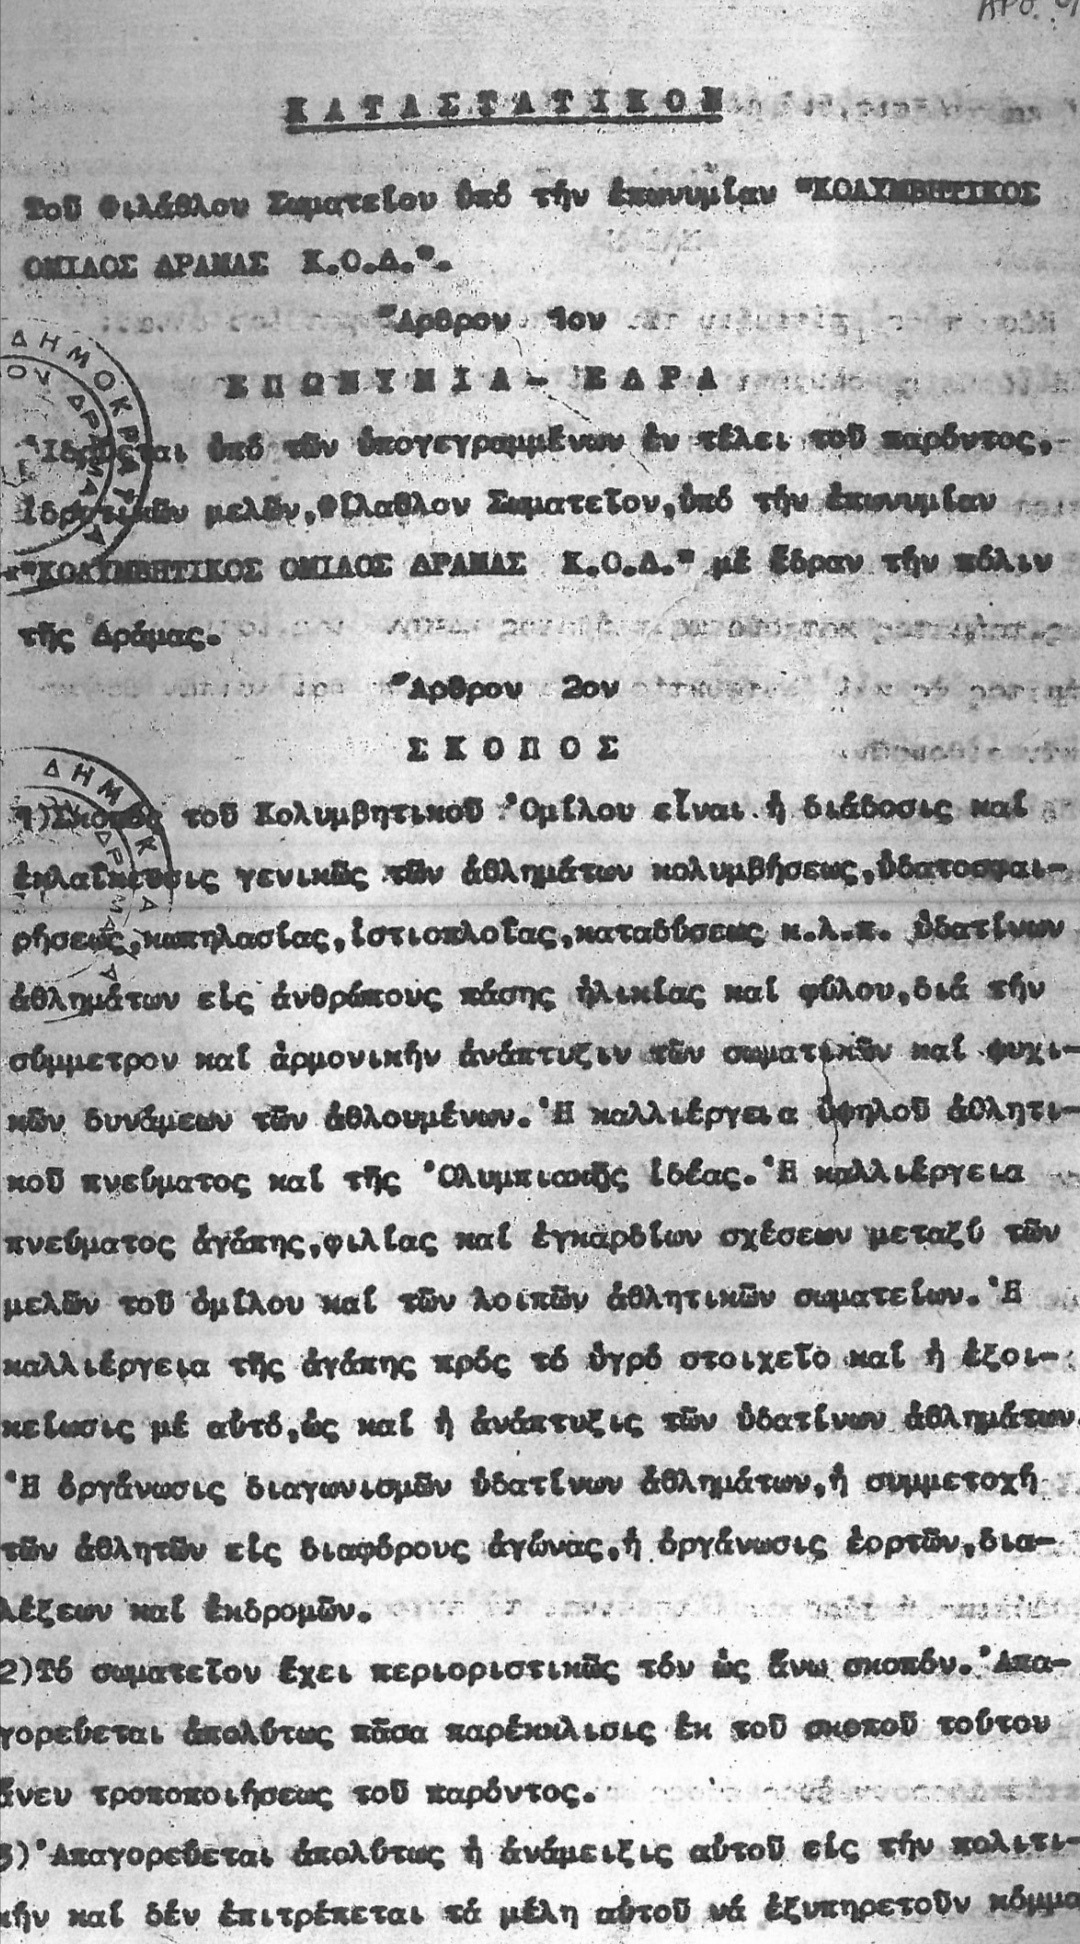 ΑΡΘ.
ΚΑΤΑΣΤΑΤΙΚΟΝ
Τοῦ Φιλάθλου Σωματείου ὑπό τήν ἐπωνυμίαν "ΚΟΛΥΜΒΗΤΙΚΟΣ
ΟΜΙΛΟΣ ΔΡΑΜΑΣ Κ.Ο.Δ.".
"Αρθρον 1ον
ΕΠΩΝΥΜΙΑ - ΕΔΡΑ
Ἱδρύεται ὑπό τῶν ὑπογεγραμμένων ἐν τέλει τοῦ παρόντος,-
ἱδρυτικῶν μελῶν, Φίλαθλον Σωματεῖον, ὑπό τήν ἐπωνυμίαν
"ΚΟΛΥΜΒΗΤΙΚΟΣ ΟΜΙΛΟΣ ΔΡΑΜΑΣ Κ.Ο.Δ." μέ ἕδραν τήν πόλιν
τῆς Δράμας.
"Αρθρον 2ον
ΣΚΟΠΟΣ
1)Σκοπός τοῦ Κολυμβητικοῦ Ὁμίλου εἶναι ἡ διάδοσις καί
ἐκλαΐκευσις γενικῶς τῶν ἀθλημάτων κολυμβήσεως, ὑδατοσφαι-
ρήσεως, κωπηλασίας, ἱστιοπλοΐας, καταδύσεως κ.λ.π. ὑδατίνων
ἀθλημάτων εἰς ἀνθρώπους πάσης ἡλικίας καί φύλου, διά τήν
σύμμετρον καί ἁρμονικήν ἀνάπτυξιν τῶν σωματικῶν καί ψυχι-
κῶν δυνάμεων τῶν ἀθλουμένων. Ἡ καλλιέργεια ὑψηλοῦ ἀθλητι-
κοῦ πνεύματος καί τῆς Ὀλυμπιακῆς ἰδέας. Ἡ καλλιέργεια
πνεύματος ἀγάπης, φιλίας καί ἐγκαρδίων σχέσεων μεταξύ τῶν
μελῶν τοῦ ὁμίλου καί τῶν λοιπῶν ἀθλητικῶν σωματείων. Ἡ
καλλιέργεια τῆς ἀγάπης πρός τό ὑγρό στοιχεῖο καί ἡ ἐξοι-
κείωσις μέ αὐτό, ὡς καί ἡ ἀνάπτυξις τῶν ὑδατίνων ἀθλημάτων.
Ἡ ὀργάνωσις διαγωνισμῶν ὑδατίνων ἀθλημάτων, ἡ συμμετοχή
τῶν ἀθλητῶν εἰς διαφόρους ἀγώνας, ἡ ὀργάνωσις ἑορτῶν, δια-
λέξεων καί ἐκδρομῶν.
2)Τό σωματεῖον ἔχει περιοριστικῶς τόν ὡς ἄνω σκοπόν. Ἀπα-
γορεύεται ἀπολύτως πᾶσα παρέκκλισις ἐκ τοῦ σκοποῦ τούτου
ἄνευ τροποποιήσεως τοῦ παρόντος.
3)Ἀπαγορεύεται ἀπολύτως ἡ ἀνάμειξις αὐτοῦ εἰς τήν πολιτι-
κήν καί δέν ἐπιτρέπεται τά μέλη αὐτοῦ νά ἐξυπηρετοῦν κόμμα